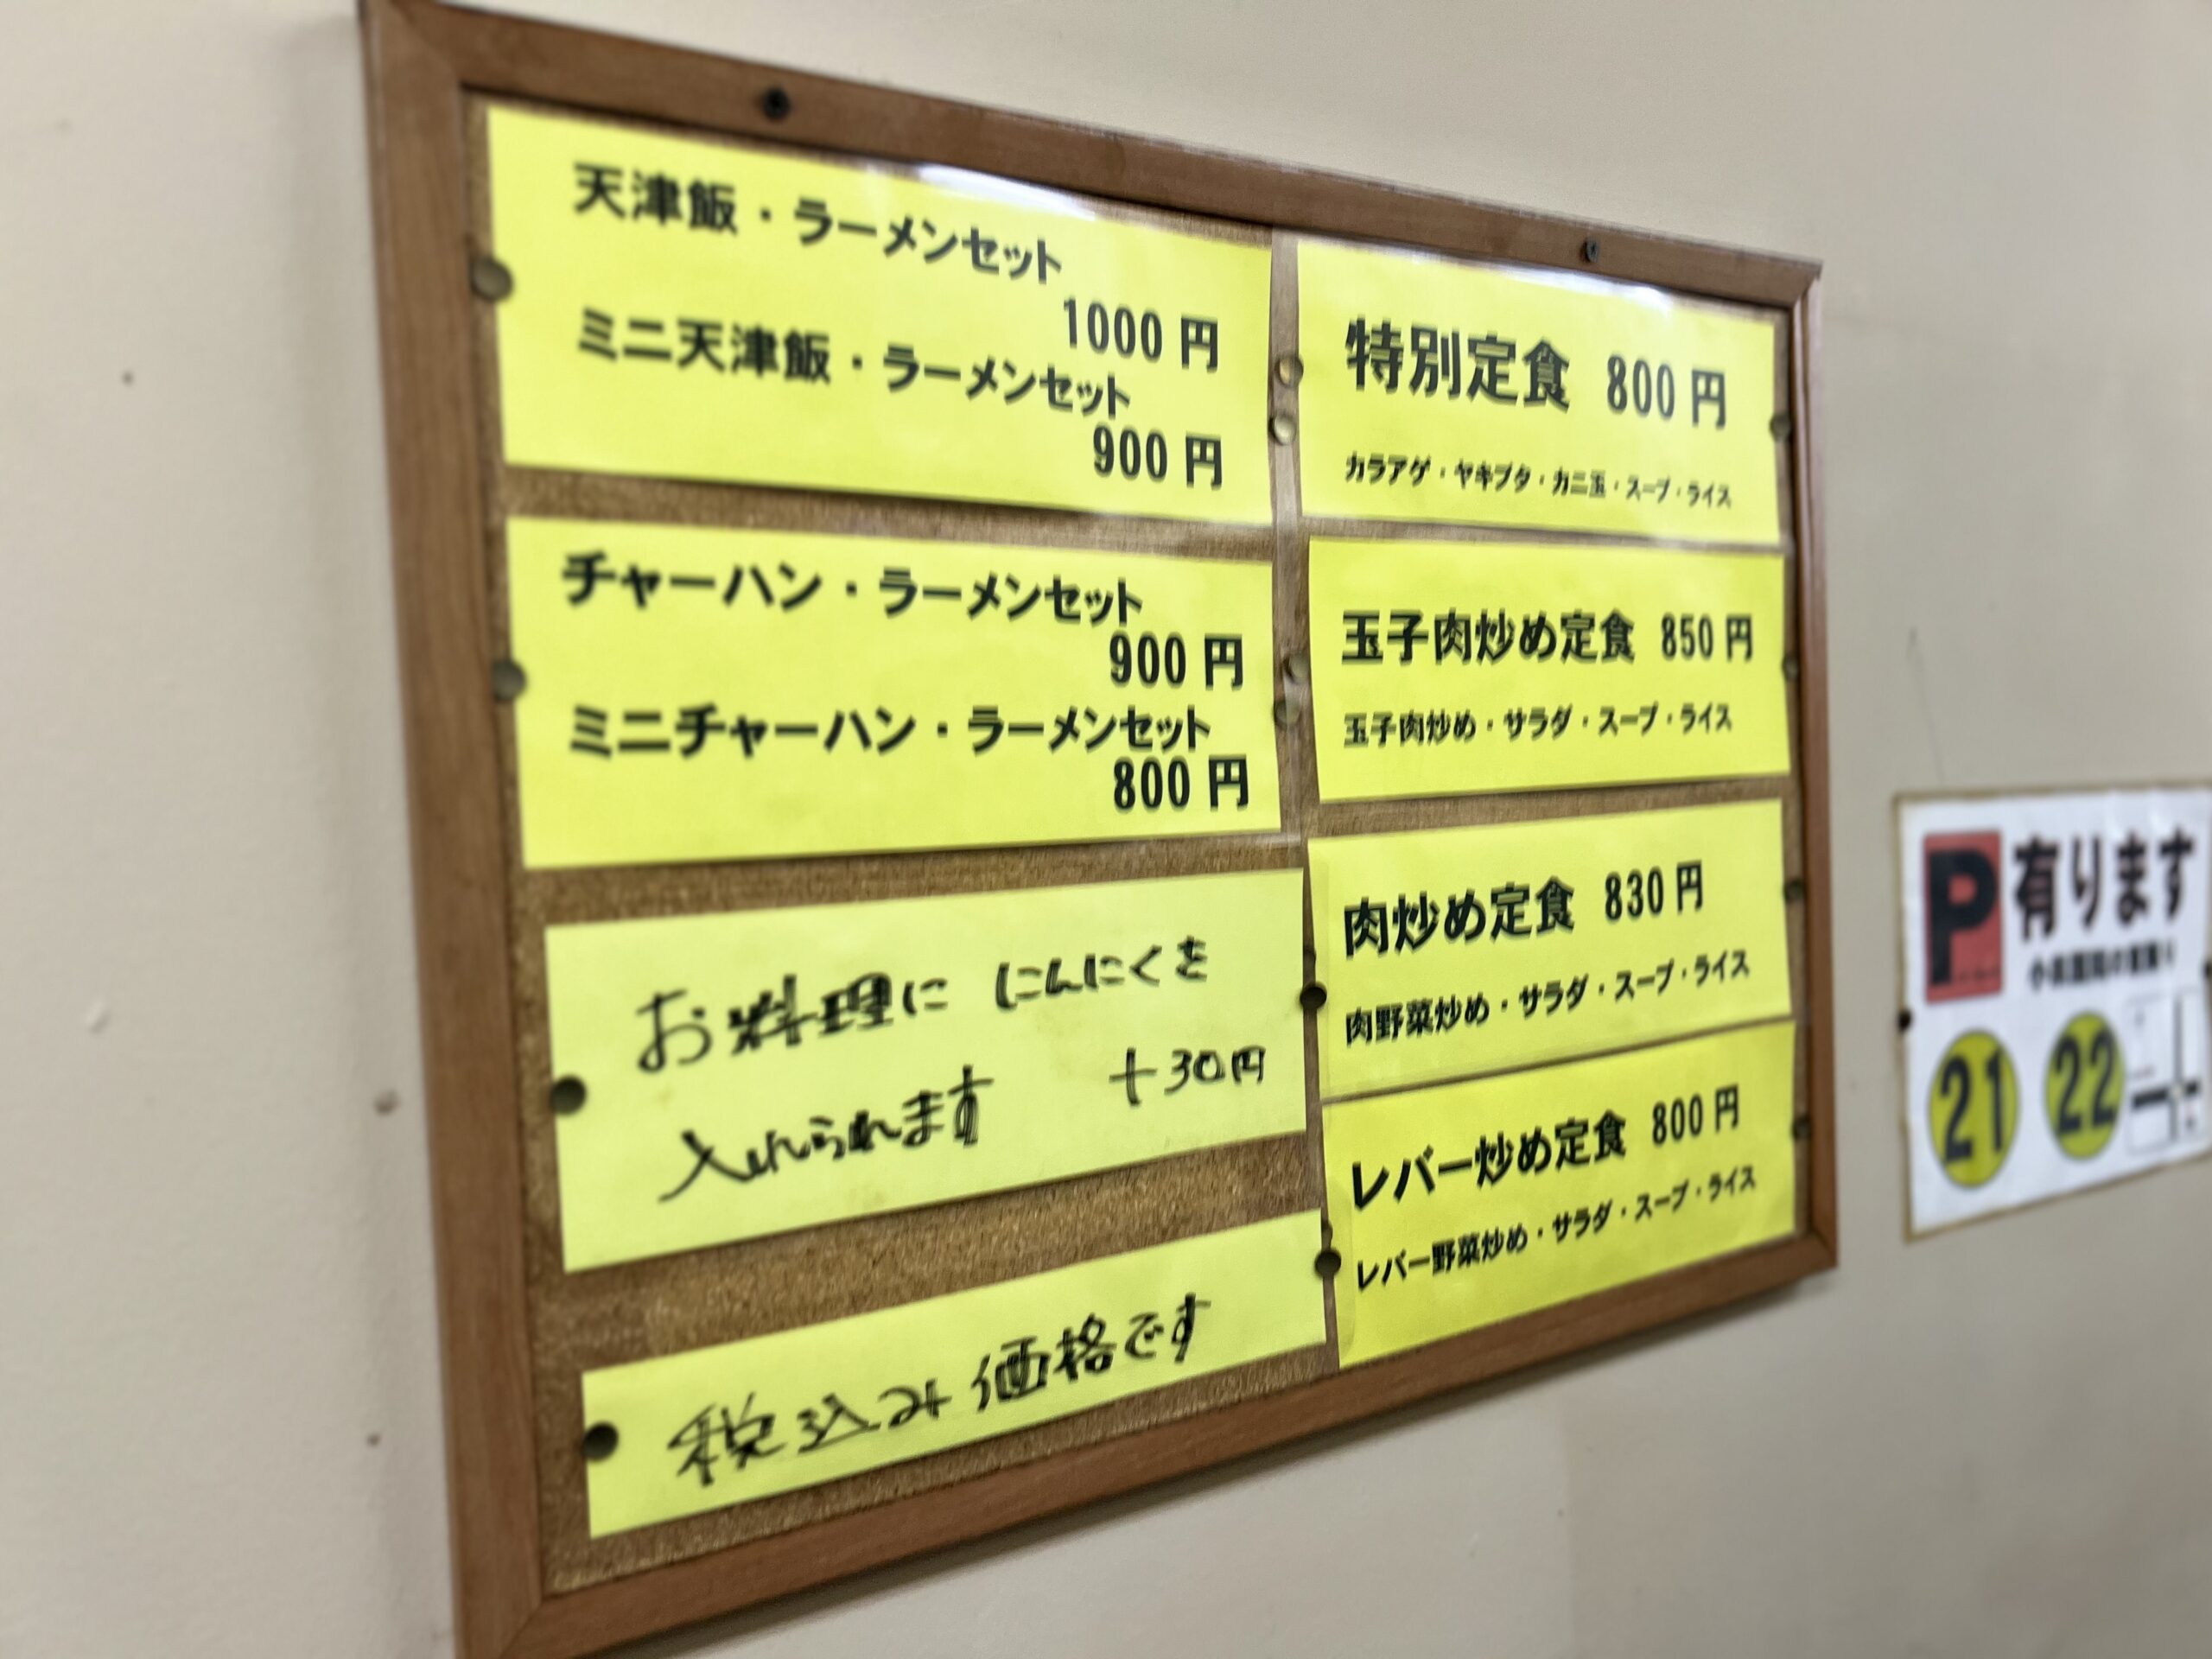 天津飯・ラーメンセット
1000円
ミニ天津飯・ラーメンセット
900円
チャーハン・ラーメンセット
900円
ミニチャーハン・ラーメンセット
800円
お料理に にんにくを
入れられます +30円
税込み価格です
特別定食 800円
カラアゲ・ヤキブタ・カニ玉・スープ・ライス
玉子肉炒め定食 850円
玉子肉炒め・サラダ・スープ・ライス
肉炒め定食 830円
肉野菜炒め・サラダ・スープ・ライス
レバー炒め定食 800円
レバー野菜炒め・サラダ・スープ・ライス
P 有ります
21 22